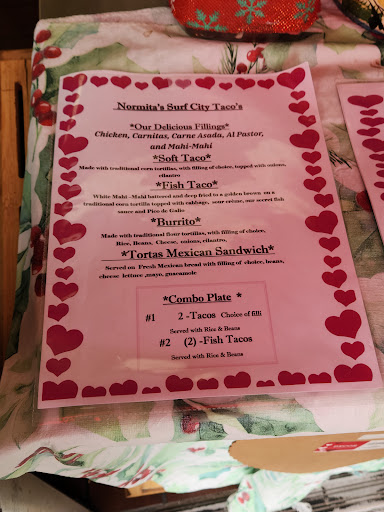 Normita's Surf City Taco's
*Our Delicious Fillings*
Chicken, Carnitas, Carne Asada, Al Pastor,
and Mahi-Mahi
*Soft Taco*
Made with traditional corn tortillas, with filling of choice, topped with onions,
cilantro
*Fish Taco*
White Mahi -Mahi battered and deep fried to a golden brown on a
traditional corn tortilla topped with cabbage, sour crème, our secret fish
sauce and Pico de Gallo
*Burrito*
Made with traditional flour tortillas, with filling of choice,
Rice, Beans, Cheese, onions, cilantro,
*Tortas Mexican Sandwich*
Served on Fresh Mexican bread with filling of choice, beans,
cheese lettuce ,mayo, guacamole
*Combo Plate *
#1 2 -Tacos Choice of filli
Served with Rice & Beans
#2 (2) -Fish Tacos
Served with Rice & Beans